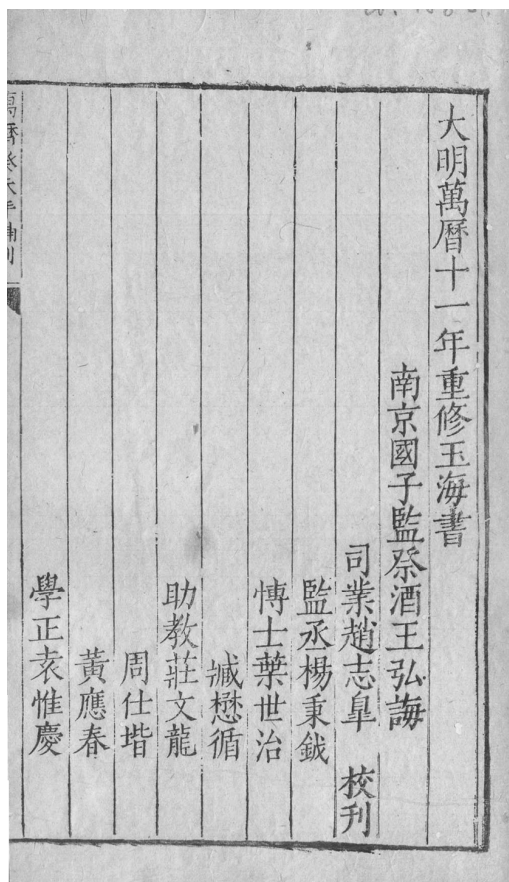 大明萬曆十一年重修玉海書
南京國子監祭酒王弘誨
司業趙志臯 校刊
監丞楊秉鉞
博士葉世治
臧懋循
助教莊文龍
周仕堦
黃應春
學正袁惟慶
萬曆癸未年補刊